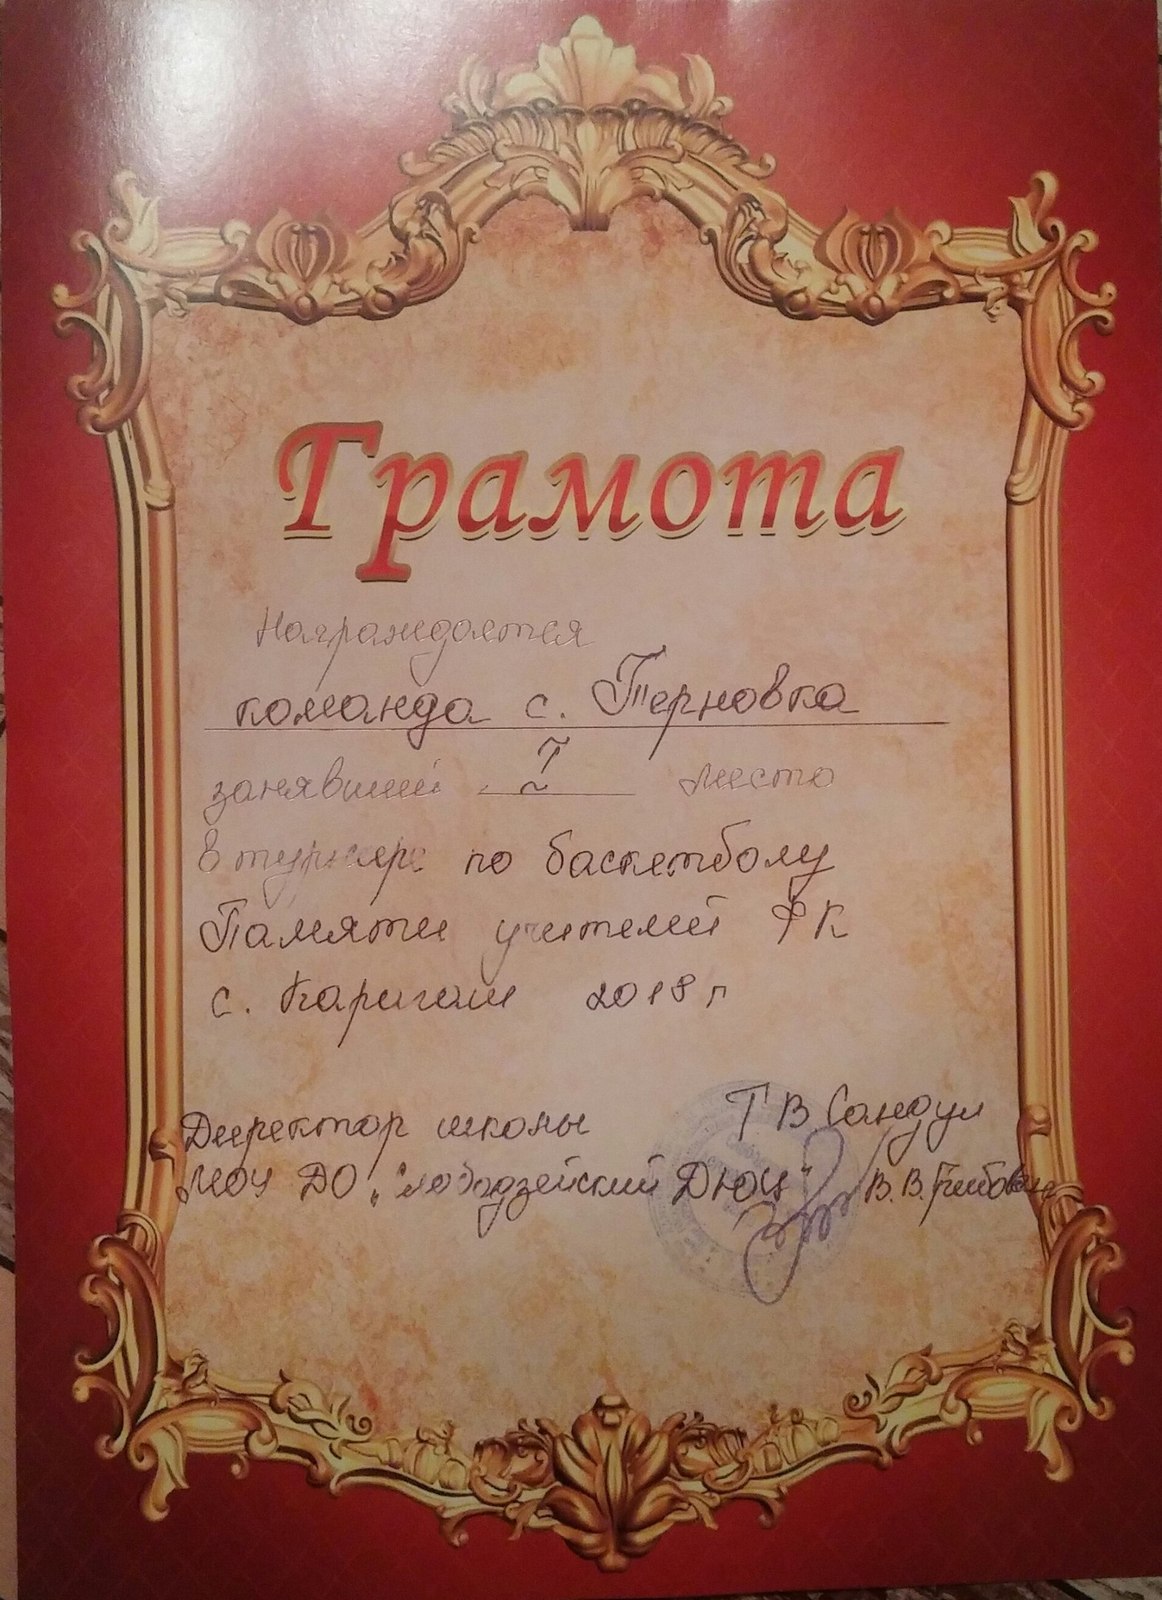 Грамота
Награждается
команда с. Терновка
занявший I место
в турнире по баскетболу
Памяти учителей ФК
с. Карагаш 2018 г
Директор школы Т В Сандул
МОУ ДО "Слободзейский ДЮЦ" В. В.